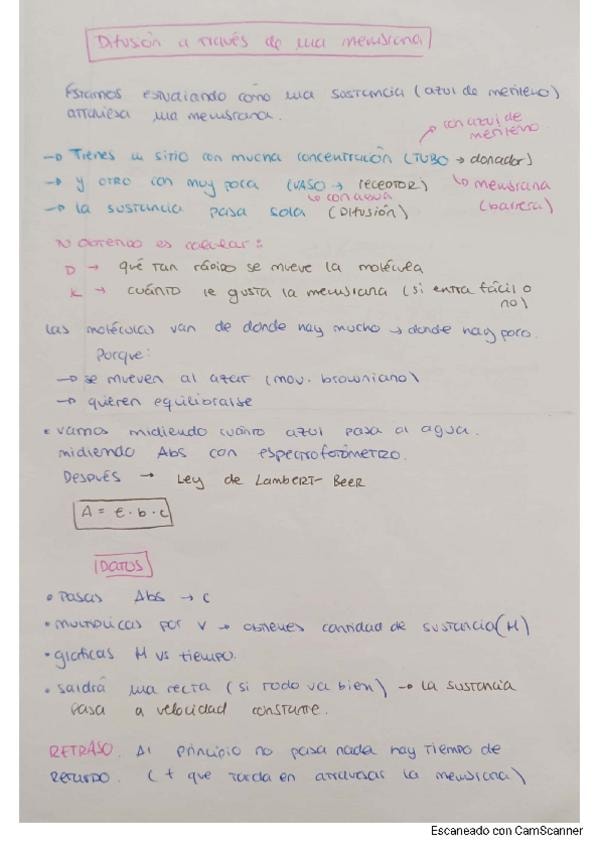 Difusión a través de una membrana
Estamos estudiando como una sustancia (azul de metileno)
atraviesa una membrana.
con azul de
metileno
→ Tienes un sitio con mucha concentración (TUBO → donador)
→ y OTRO con muy poca (VASO → receptor)
↳ membrana
(barrera)
↳ con agua
→ la sustancia pasa sola (Difusión)
N objetivo es calcular:
D → qué tan rápido se mueve la molécula
K → cuánto le gusta la membrana (si entra fácil o
no)
las moléculas van de donde hay mucho → donde hay poco.
Porque:
→ se mueven al azar (mov. browniano)
→ quieren equilibrarse
• vamos midiendo cuánto azul pasa al agua.
midiendo Abs con espectrofotómetro.
Después → Ley de Lambert-Beer
A = ε · b · c
DATOS
• Pasas Abs → c
• multiplicas por V → obtienes cantidad de sustancia (M)
• graficas M vs tiempo.
• saldrá una recta (si todo va bien) → la sustancia
pasa a velocidad constante.
RETRASO. Al principio no pasa nada hay tiempo de
retardo. (t que tarda en atravesar la membrana)
Escaneado con CamScanner